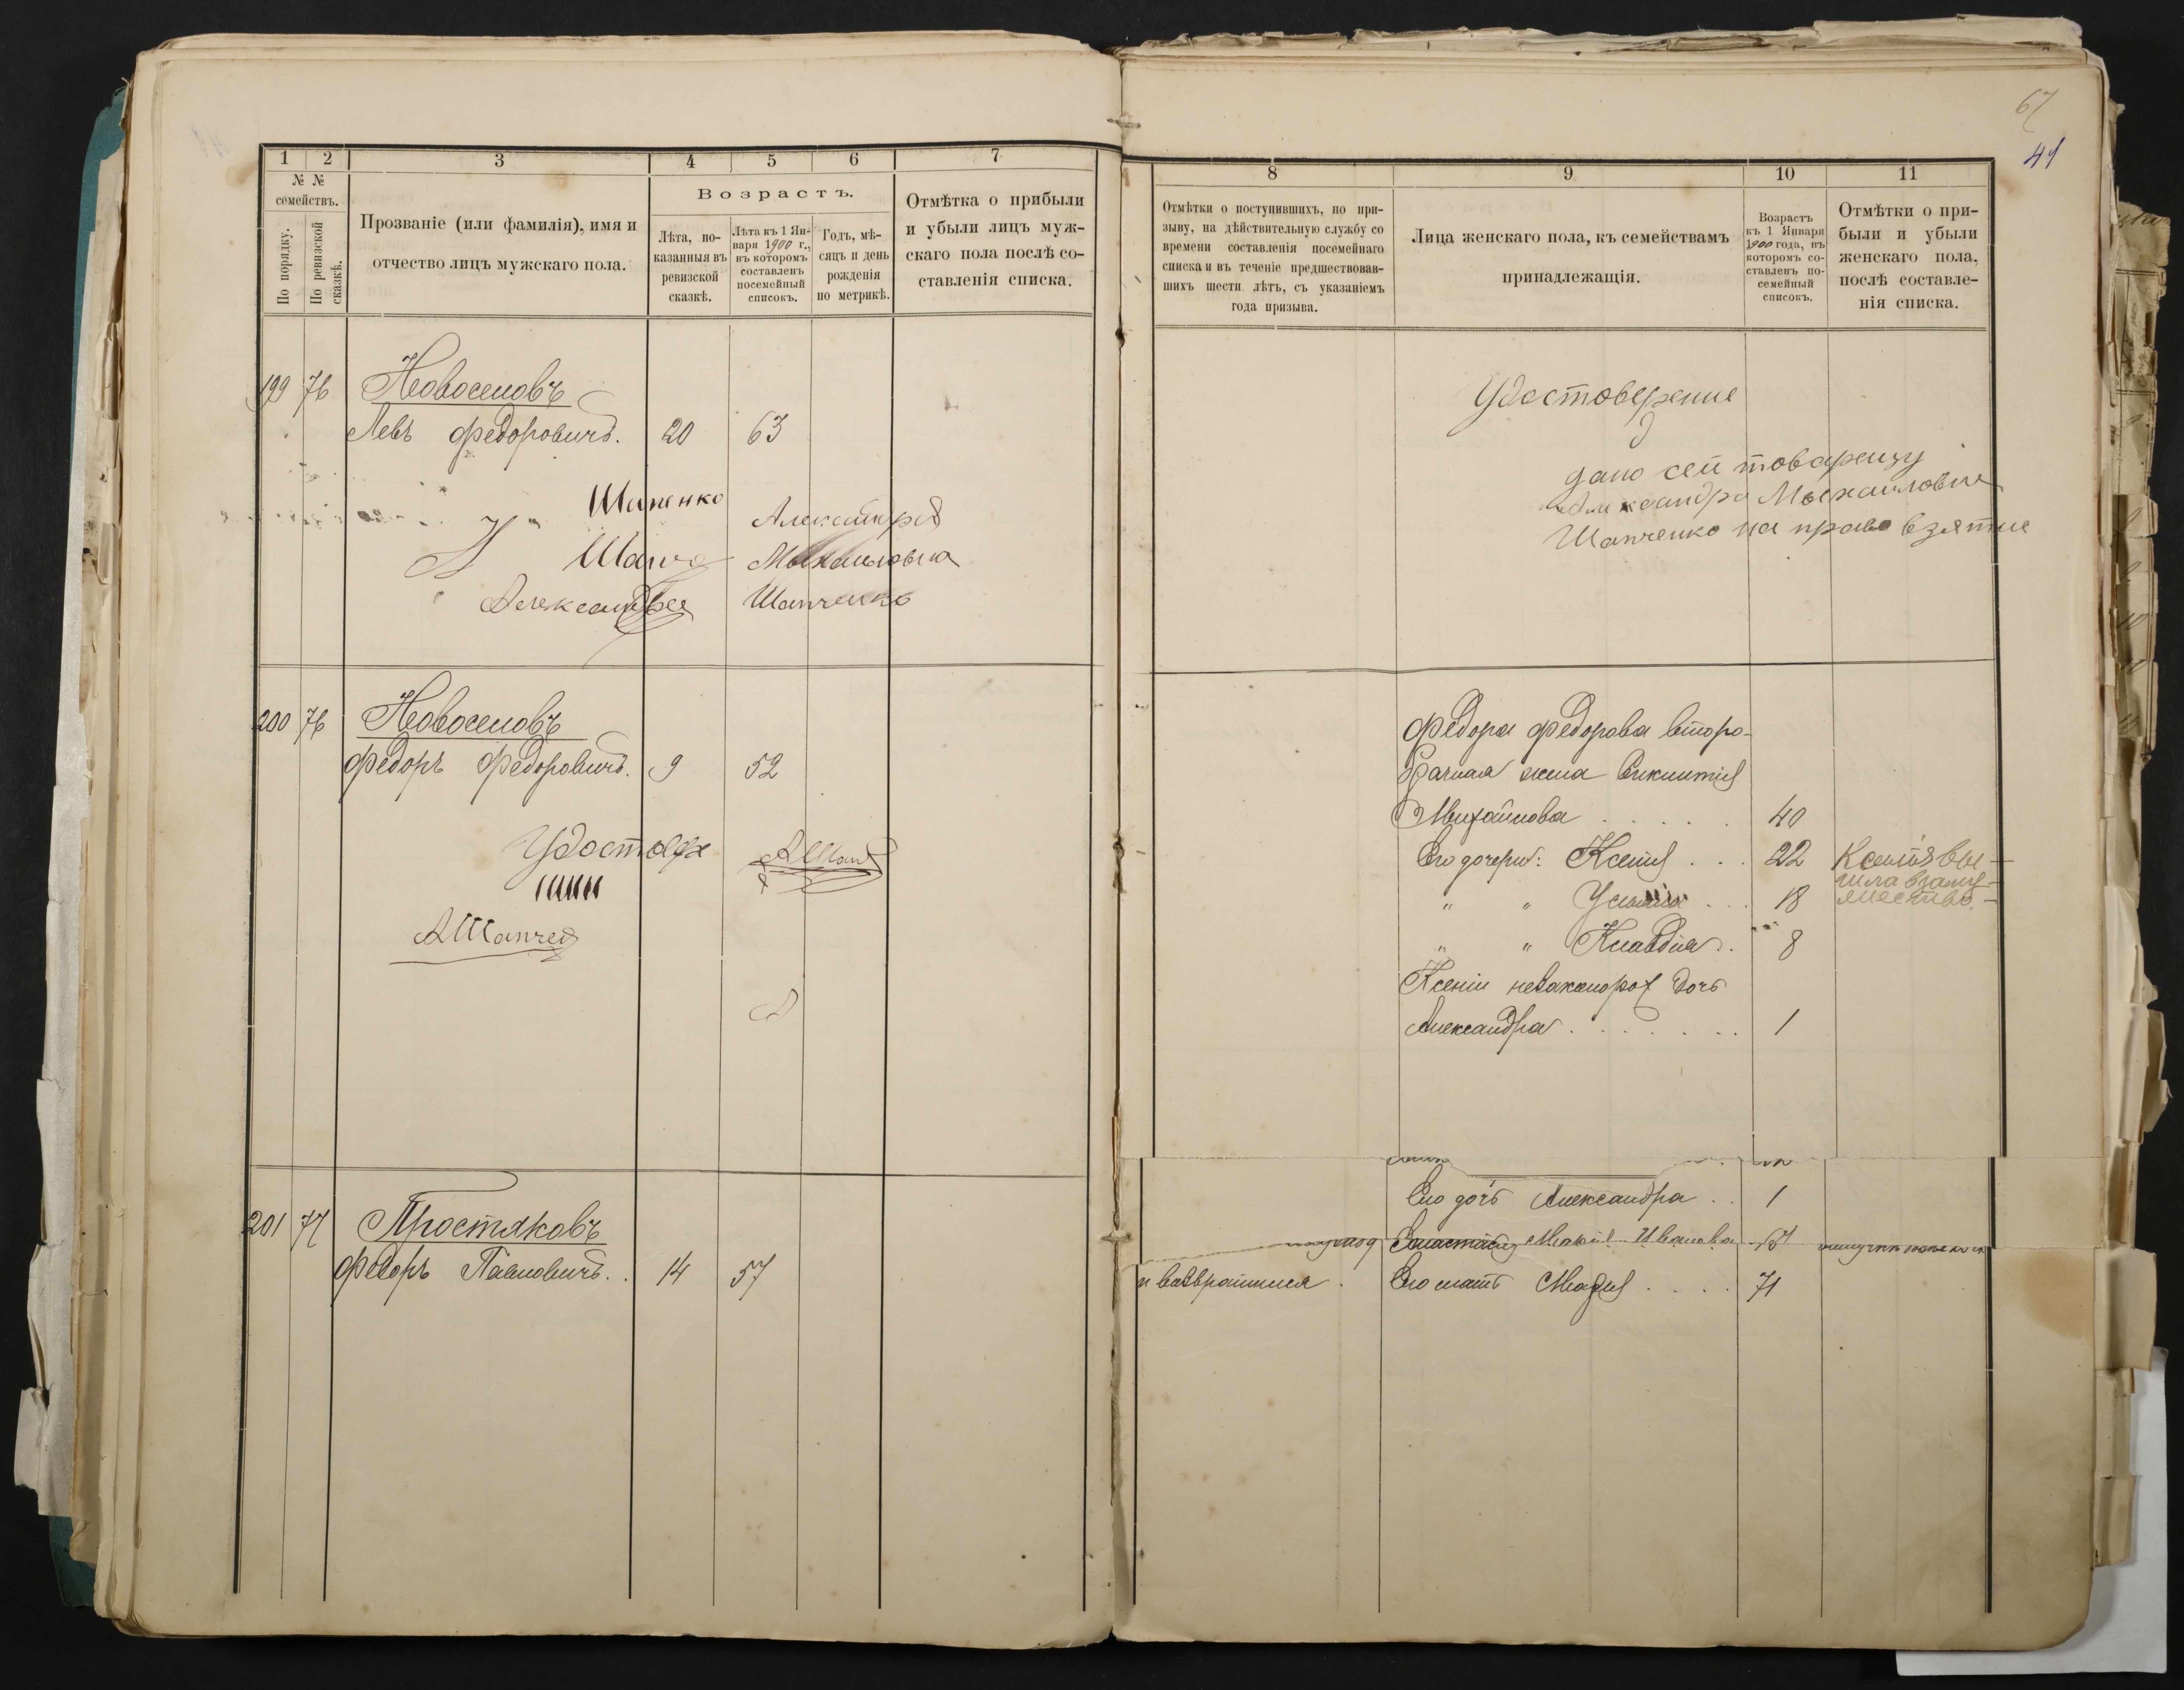 1 2 3 4 5 6 7
№ № семействъ.
По порядку.
По ревизской сказкѣ.
Прозваніе (или фамилія), имя и
отчество лицъ мужскаго пола.
Возрастъ.
Лѣта, по-
казанныя въ
ревизской
сказкѣ.
Лѣта къ 1 Ян-
варя 1900 г.,
въ которомъ
составленъ
посемейный
списокъ.
Годъ, мѣ-
сяцъ и день
рожденія
по метрикѣ.
Отмѣтка о прибыли
и убыли лицъ муж-
скаго пола послѣ со-
ставленія списка.
199 76 Новоселовъ
Левъ Федоровичъ. 20 63
Шапенко
Александра
Михаиловна
Александра Шапченко
200 76 Новоселовъ
Федоръ Федоровичъ. 9 52
201 77 Простяковъ
Федоръ Павловичъ. . 14 57
67
41
8 9 10 11
Отмѣтки о поступившихъ, по при-
зыву, на дѣйствительную службу со
времени составленія посемейнаго
списка и въ теченіе предшествовав-
шихъ шести лѣтъ, съ указаніемъ
года призыва.
Лица женскаго пола, къ семействамъ
принадлежащія.
Возрастъ
къ 1 Января
1900 года, въ
которомъ со-
ставленъ по-
семейный
списокъ.
Отмѣтки о при-
были и убыли
женскаго пола,
послѣ составле-
нія списка.
Удостоверение
дано сей товарищу
Александра Михаиловне
Шапченко на право взятие
Федора Федорова второ-
брачная жена
Михайлова . . . . . 40
Его дочери: Ксенія . . . 22 Ксенія вы-
шла взаму-
жество. -
" " . . . 18
" " Клавдія . 8
Ксеніи незаконорож дочь
Александра . . . . . . . 1
Его дочь Александра . . 1
Иванова
и возвратился . Его мать Марія . . . . 71